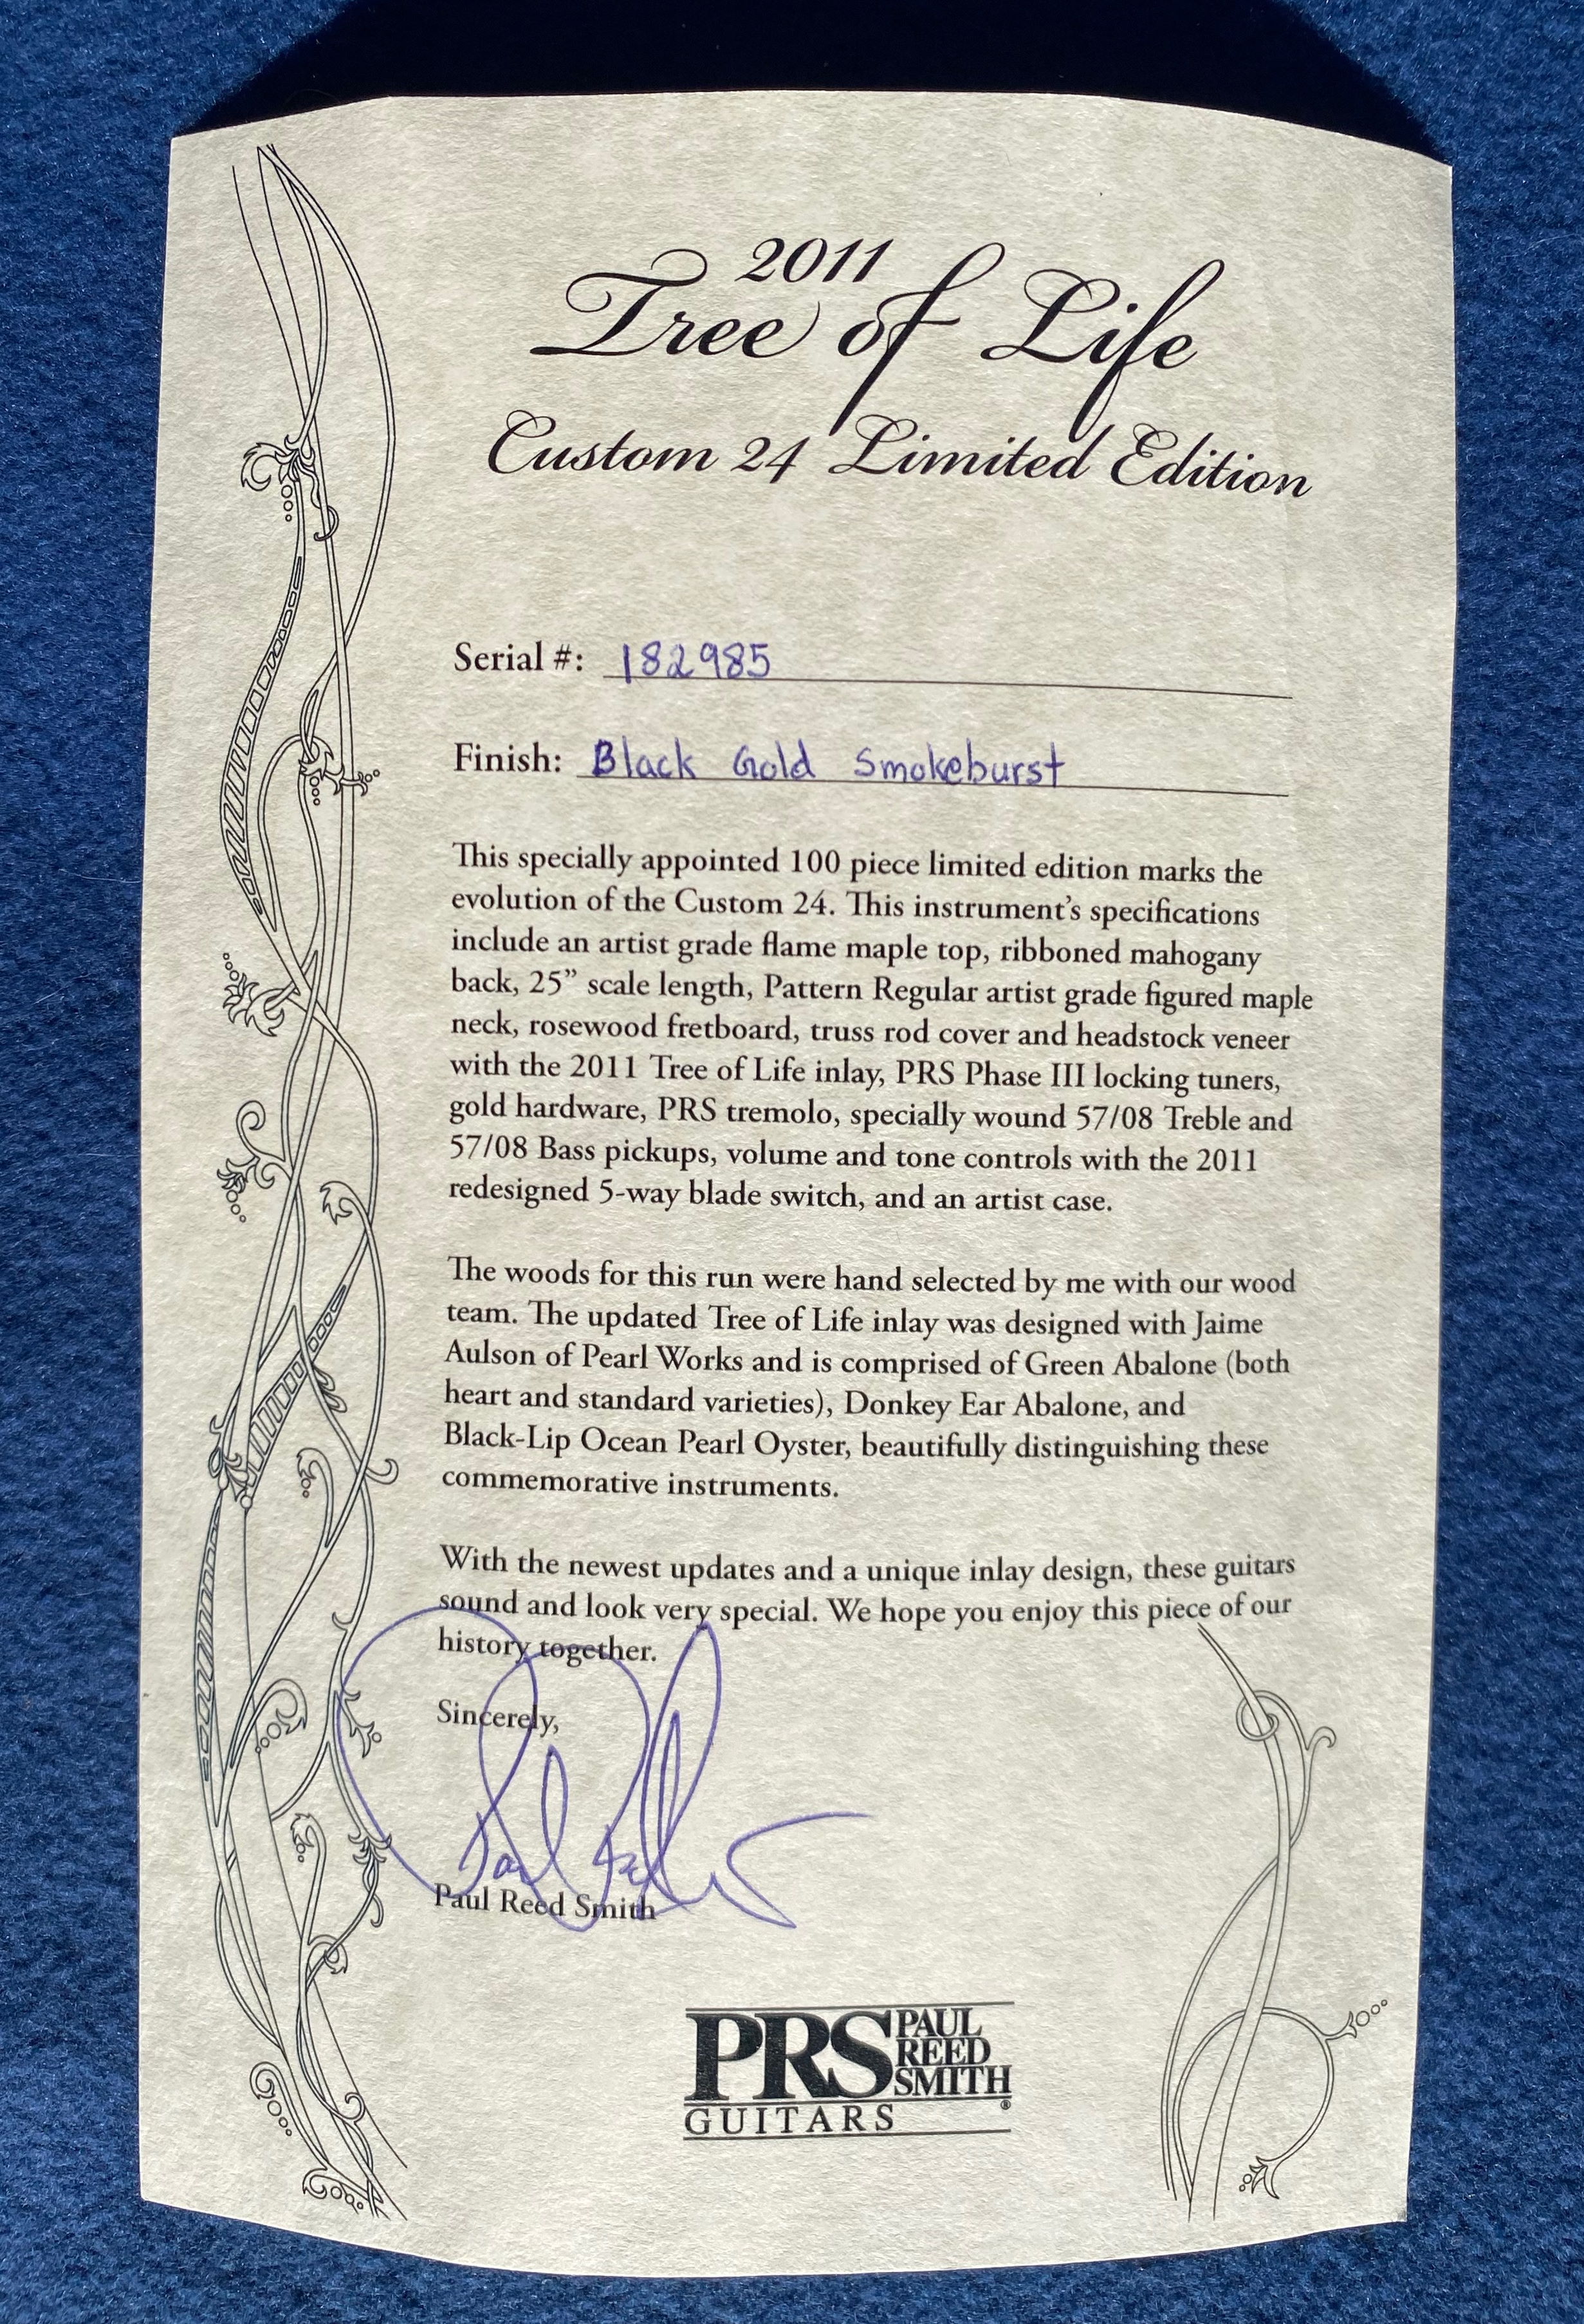 2011
Tree of Life
Custom 24 Limited Edition
Serial #: 182985
Finish: Black Gold Smokeburst
This specially appointed 100 piece limited edition marks the
evolution of the Custom 24. This instrument’s specifications
include an artist grade flame maple top, ribboned mahogany
back, 25” scale length, Pattern Regular artist grade figured maple
neck, rosewood fretboard, truss rod cover and headstock veneer
with the 2011 Tree of Life inlay, PRS Phase III locking tuners,
gold hardware, PRS tremolo, specially wound 57/08 Treble and
57/08 Bass pickups, volume and tone controls with the 2011
redesigned 5-way blade switch, and an artist case.
The woods for this run were hand selected by me with our wood
team. The updated Tree of Life inlay was designed with Jaime
Aulson of Pearl Works and is comprised of Green Abalone (both
heart and standard varieties), Donkey Ear Abalone, and
Black-Lip Ocean Pearl Oyster, beautifully distinguishing these
commemorative instruments.
With the newest updates and a unique inlay design, these guitars
sound and look very special. We hope you enjoy this piece of our
history together.
Sincerely,
Paul Reed Smith
PRS PAUL
REED
SMITH
GUITARS ®